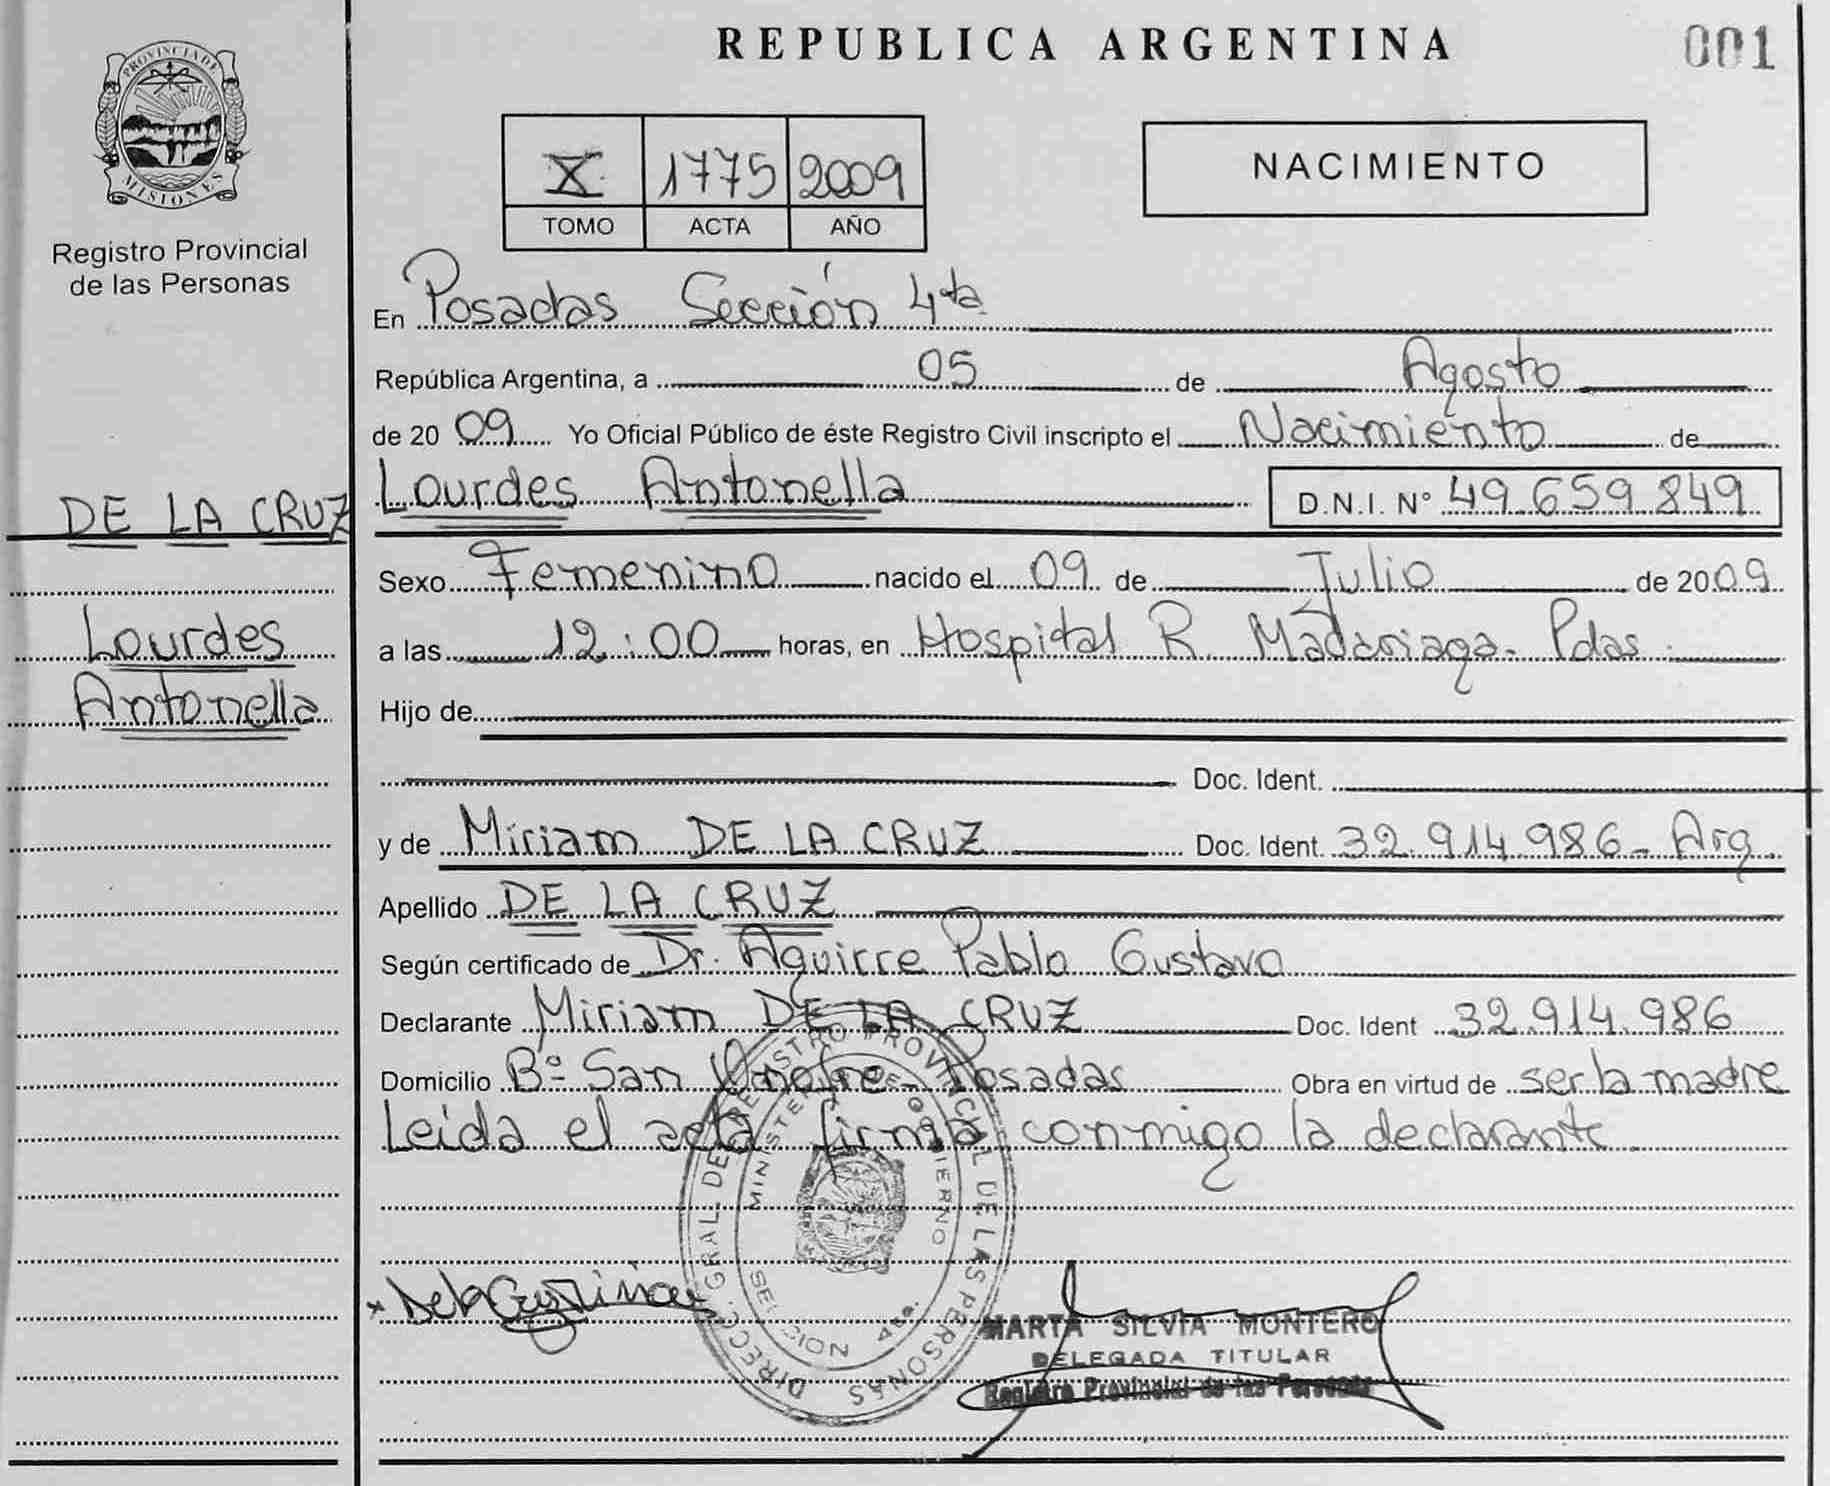 REPUBLICA ARGENTINA
001
PROVINCIA DE
MISIONES
Registro Provincial
de las Personas
X 1775 2009
TOMO ACTA AÑO
NACIMIENTO
En Posadas Sección 4ta
República Argentina, a 05 de Agosto
de 2009 Yo Oficial Público de éste Registro Civil inscripto el Nacimiento de
Lourdes Antonella D.N.I. N° 49.659.849
DE LA CRUZ
Lourdes
Antonella
Sexo Femenino nacido el 09 de Julio de 2009
a las 12:00 horas, en Hospital R. Madariaga - Pdas.
Hijo de
Doc. Ident.
y de Miriam DE LA CRUZ Doc. Ident. 32.914.986 - Arg.
Apellido DE LA CRUZ
Según certificado de Dr. Aguirre Pablo Gustavo
Declarante Miriam DE LA CRUZ Doc. Ident 32.914.986
Domicilio B° San Onofre - Posadas Obra en virtud de ser la madre
Leida el acta firma conmigo la declarante
DIRECC. GRAL. DE REGISTRO PROVINCIAL DE LAS PERSONAS
MINISTERIO DE GOBIERNO
MARTA SILVIA MONTERO
DELEGADA TITULAR
Registro Provincial de las Personas